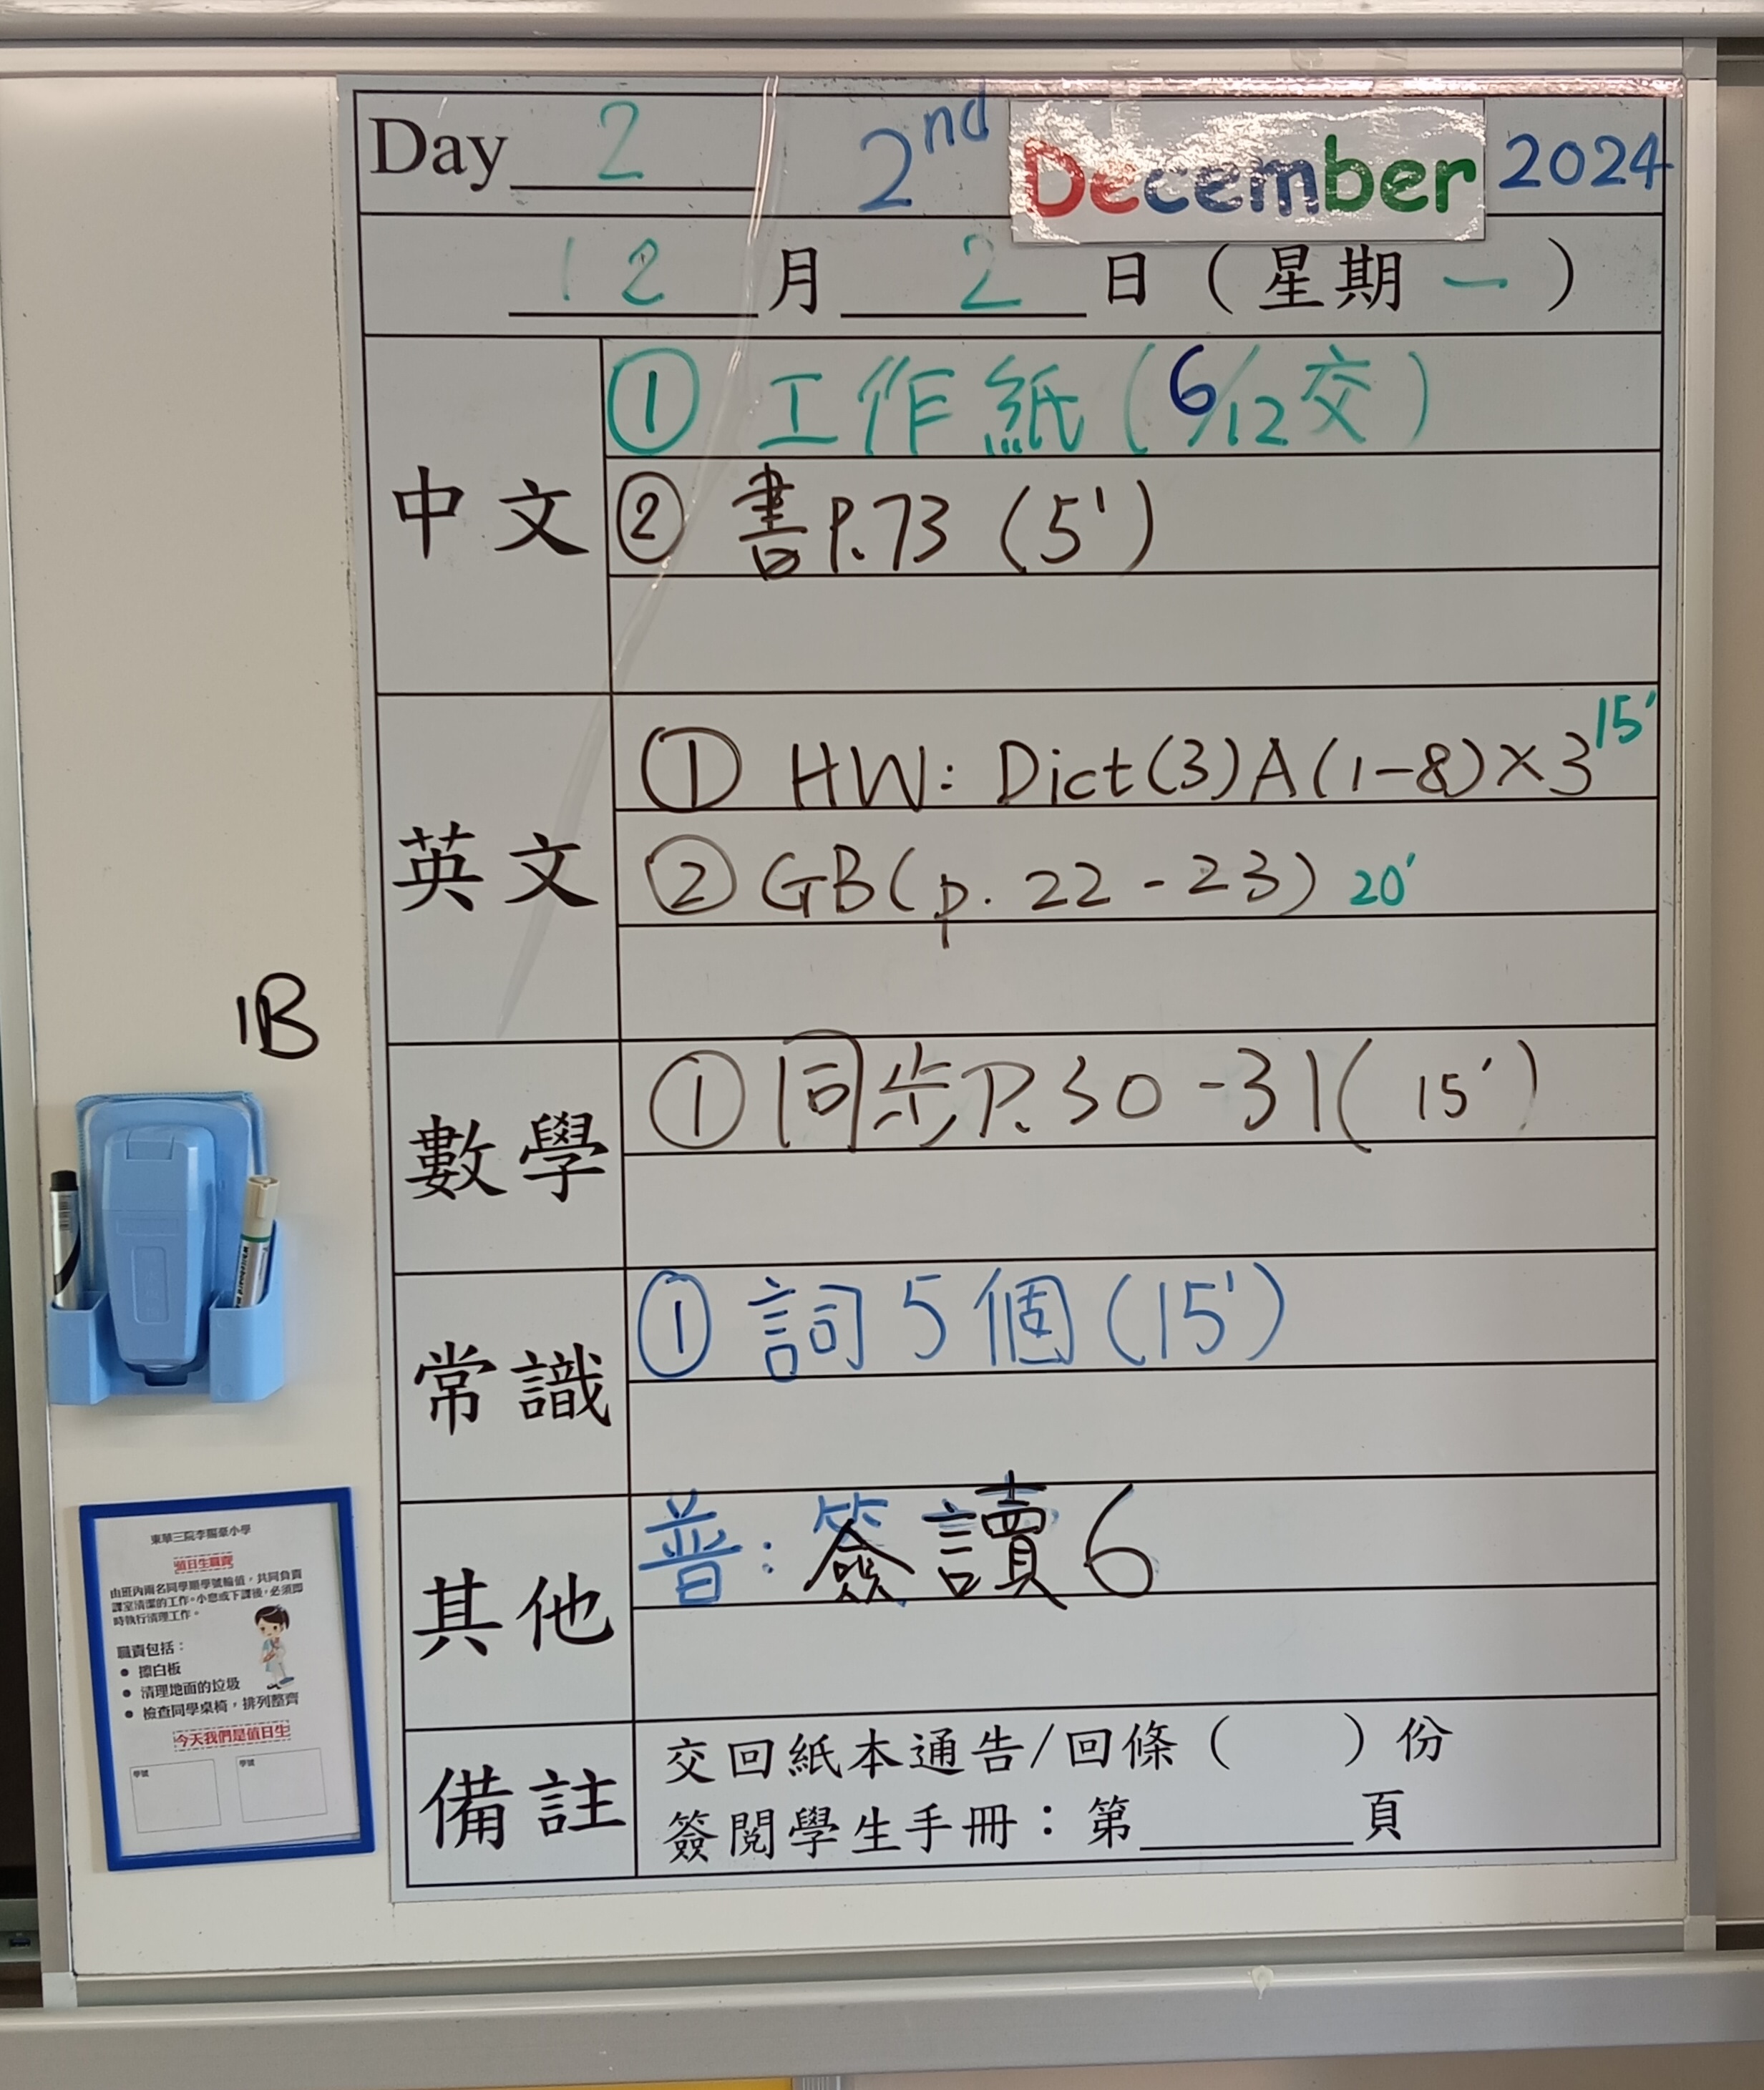 Day 2 2nd December 2024
12 月 2 日 ( 星期 一 )
中文
① 工作紙 ( 6/12 交 )
② 書 P.73 ( 5' )
英文
① HW: Dict (3) A (1-8) × 3 15'
② GB ( p. 22 - 23 ) 20'
數學
① 同步 P.30 - 31 ( 15' )
常識
① 詞 5 個 ( 15' )
其他
普 : 簽讀 6
備註
交回紙本通告/回條 ( ) 份
簽閱學生手冊：第 頁
1B
東華三院李賜豪小學
值日生職責
由班內兩名同學順學號輪值，共同負責
課室清潔的工作。小息或下課後，必須即
時執行清理工作。
職責包括：
● 擦白板
● 清理地面的垃圾
● 檢查同學桌椅，排列整齊
今天我們是值日生
學號 學號